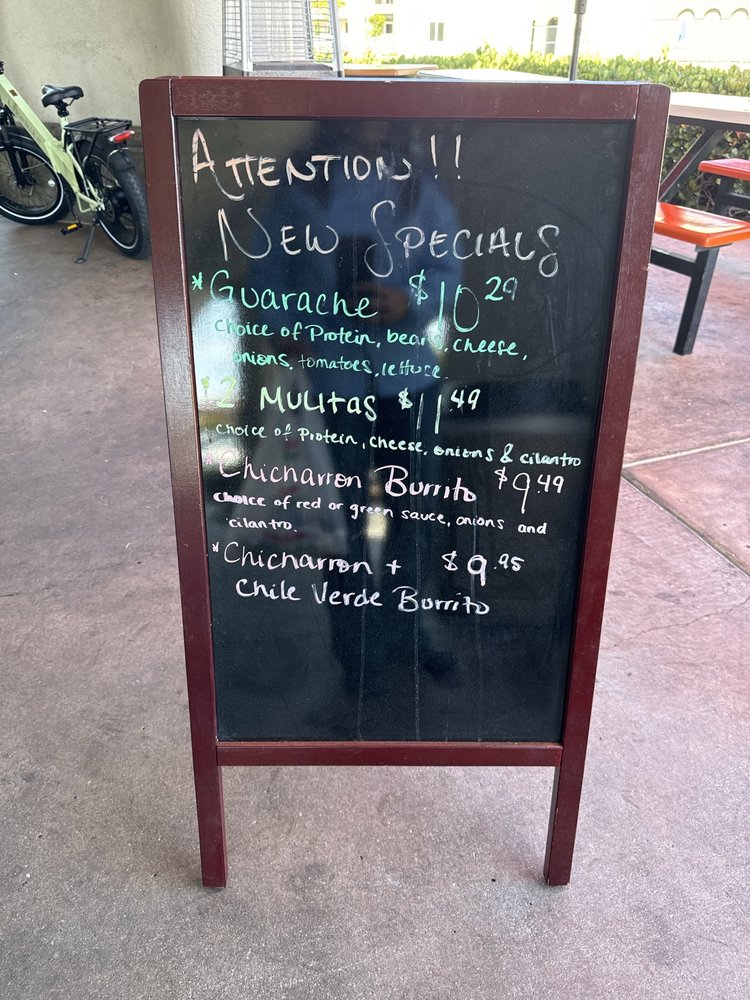 ATTENTION!!
NEW SPECIALS
*Guarache $10.29
choice of Protein, beans, cheese,
onions, tomatoes, lettuce.
* 2 Mulitas $11.49
choice of Protein, cheese, onions & cilantro
Chicharron Burrito $9.49
choice of red or green sauce, onions and
cilantro.
*Chicharron + $9.95
Chile Verde Burrito